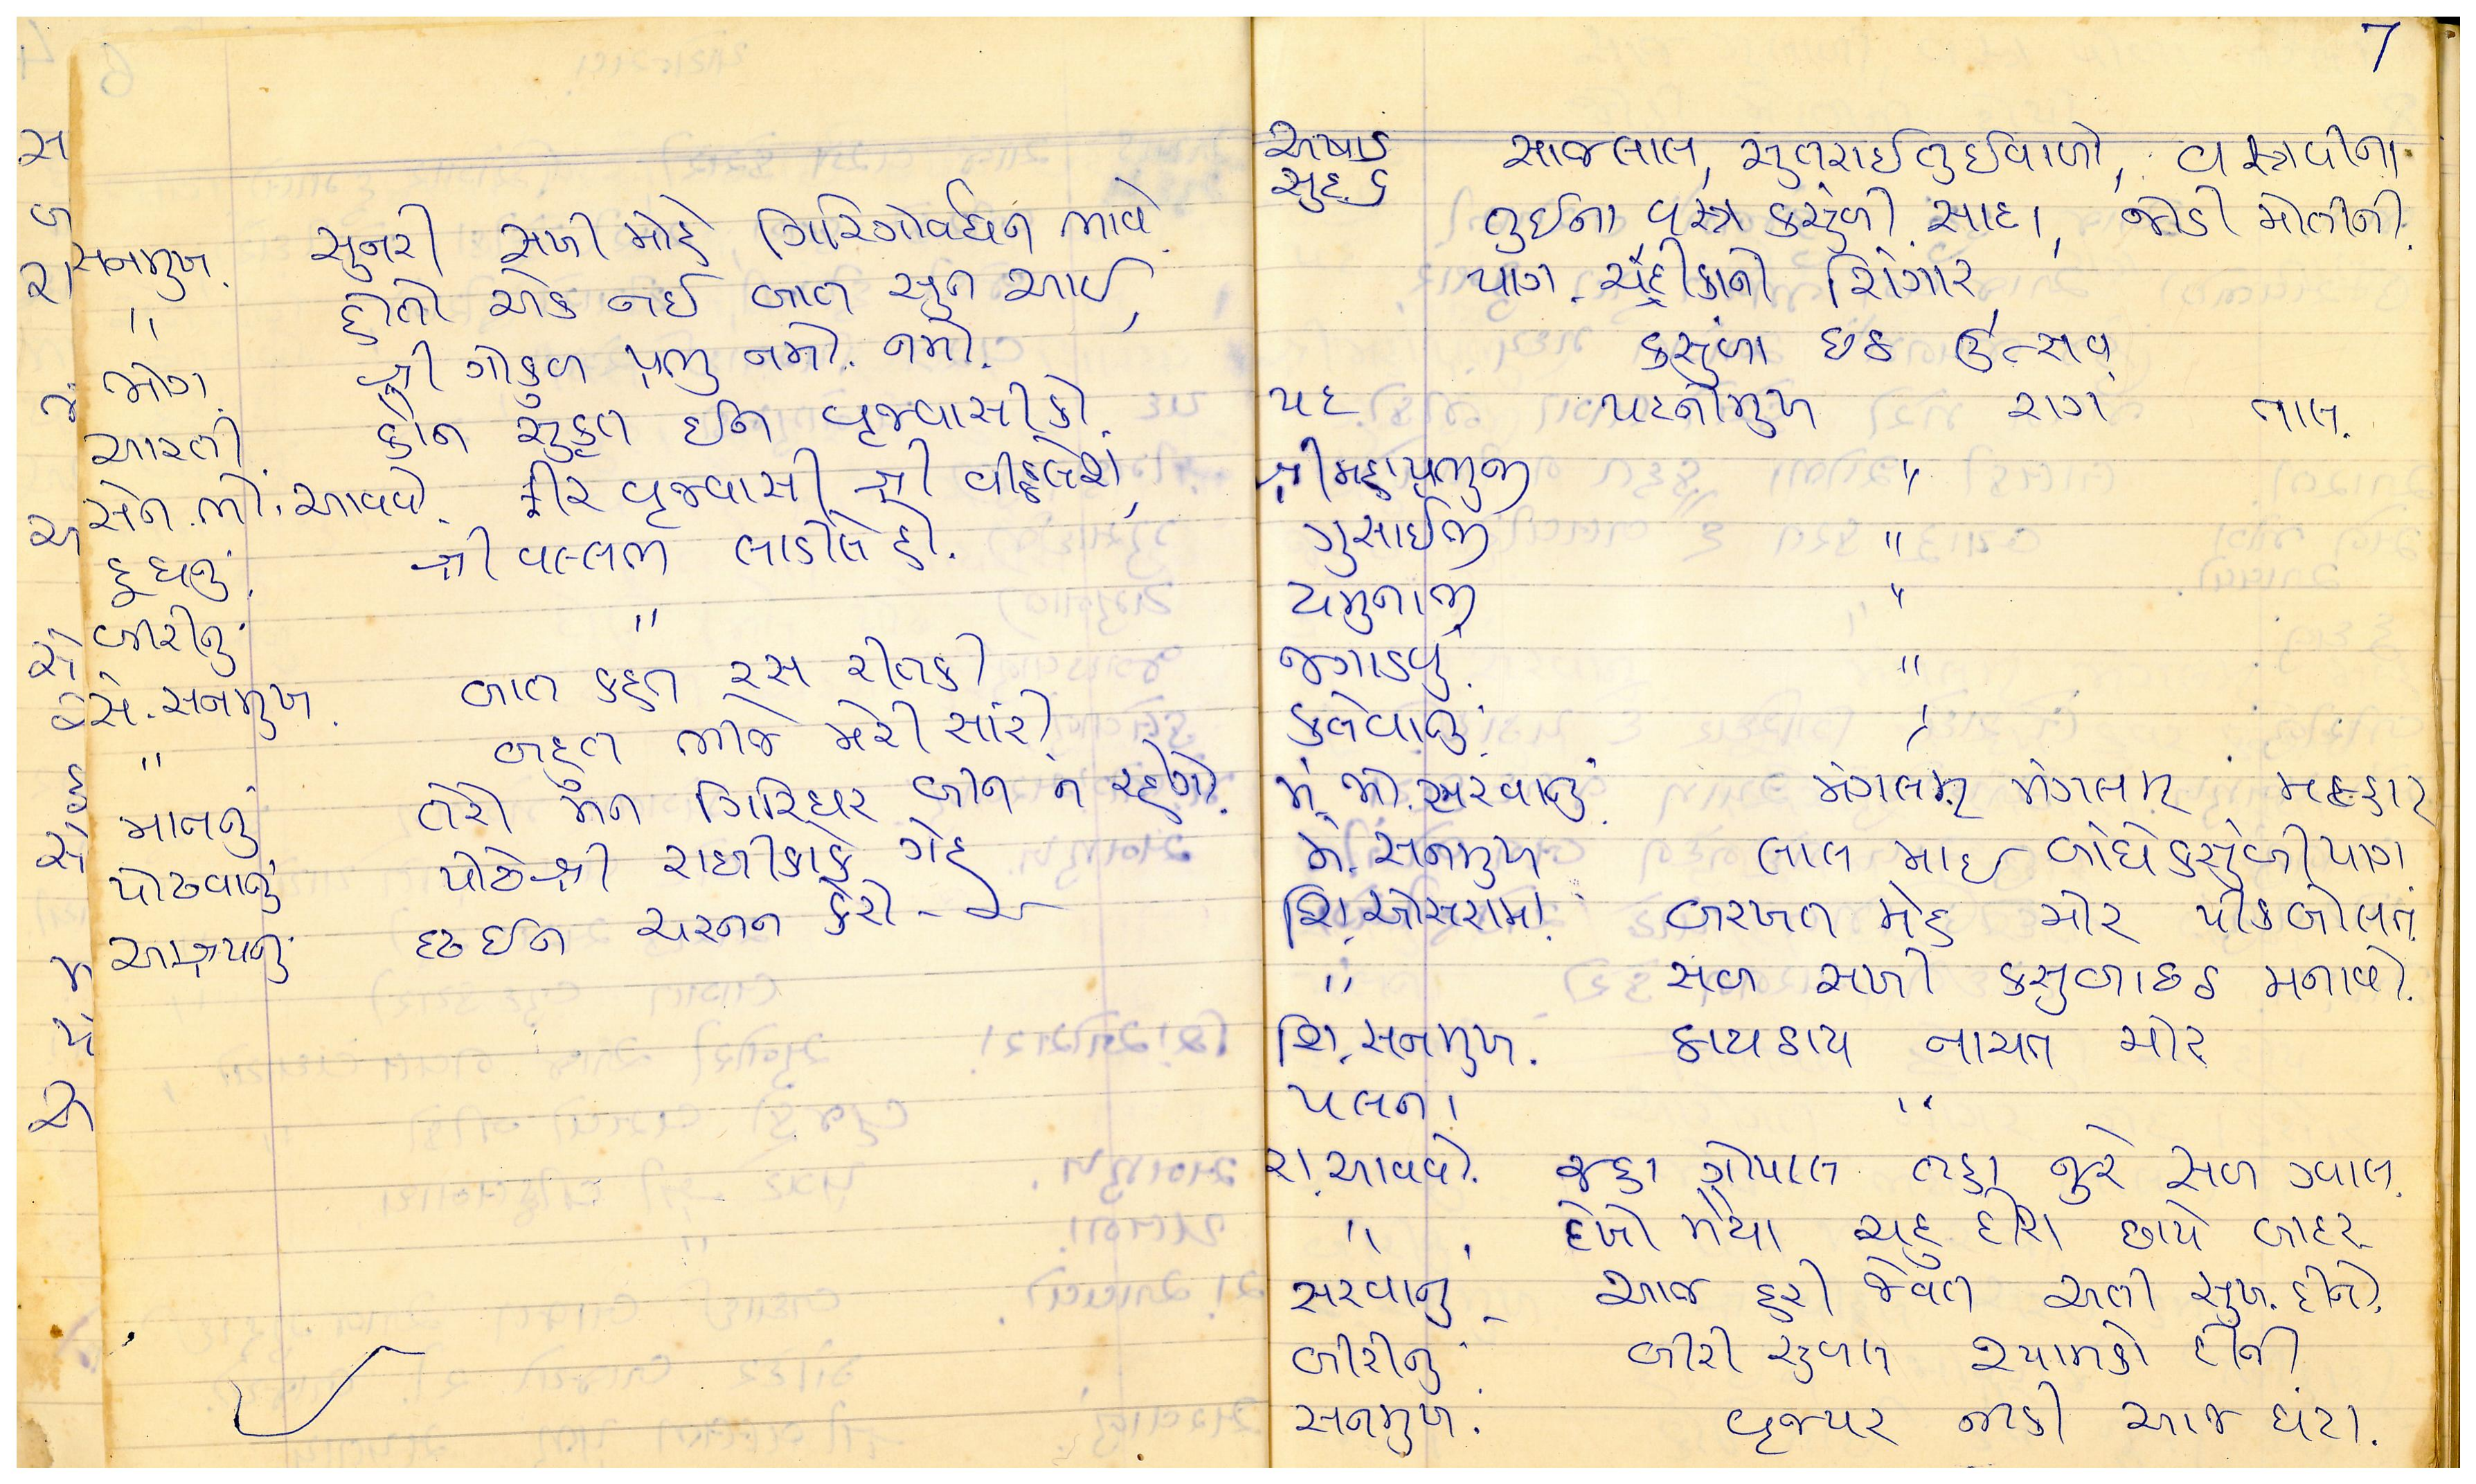 સનમુખ. સુનરી સખી મોહે ગિરિગોવર્ધન ભાવે.
" હોતો એક નઈ બાત સુન આઈ,
ભોગ. શ્રી ગોકુળ પ્રભુ નમો. નમો.
આરતી. કોન સુકૃત ઈન વૃજવાસીકો.
સેન.ભો.આવવે. વૃજવાસી શ્રી વીઠ્ઠલેશ,
દૂધનું. શ્રી વલ્લભ લાડીલે હી.
બીરીનું. "
સે. સનમુખ. બાત કહત રસ રીતકી
" બદલ ભીજે મેરી સારી.
માનનું તેરો મન ગિરિધર બીન ન રહેગો.
પોઢવાનું પોઢે શ્રી રાધીકાકે ગેહ
આશ્રયનું દૃઢ ઈન ચરનન કેરો
7
અષાડ સુદ ૬ સાજલાલ, સુતરાઈતુઈવાળો, વસ્ત્રવીના
તુઈના વસ્ત્ર કસુંબી સાદા, જોડી મોતીની.
પાગ. ચંદ્રીકાનો શિંગાર,
કસુંબા છઠ ઉત્સવ.
પદ પદનીમુખ રાગ તાલ.
શ્રીમહાપ્રભુજી "
ગુસાંઈજી "
યમુનાજી "
જગાડવું. "
કલેવાનું. "
મં. ભો. સરવાનું. મંગલમ્ મંગલમ્ મલ્હાર
મં. સનમુખ લાલ માઈ બાંધેકસુંબીપાગ.
શિં. ઓસરામાં. બરખત મેહ મોર પીકબોલત.
" સબ સખી કસુબાછઠ મનાવો.
શિં. સનમુખ. ઠાયઠાય નાચત મોર
પલના "
રા. આવવે. જહાં ગોપાલ તહાં જુરે સબ ગ્વાલ.
" દેખો મૈયા ચહુ દીશ છાયે બાદર
સરવાનું આજ હરી જેંવત અતી સુખ. દીનો.
બીરીનું બીરી સુબલ શ્યામકો દીની
સનમુખ. વૃજપર નીકી આજ ઘટા.